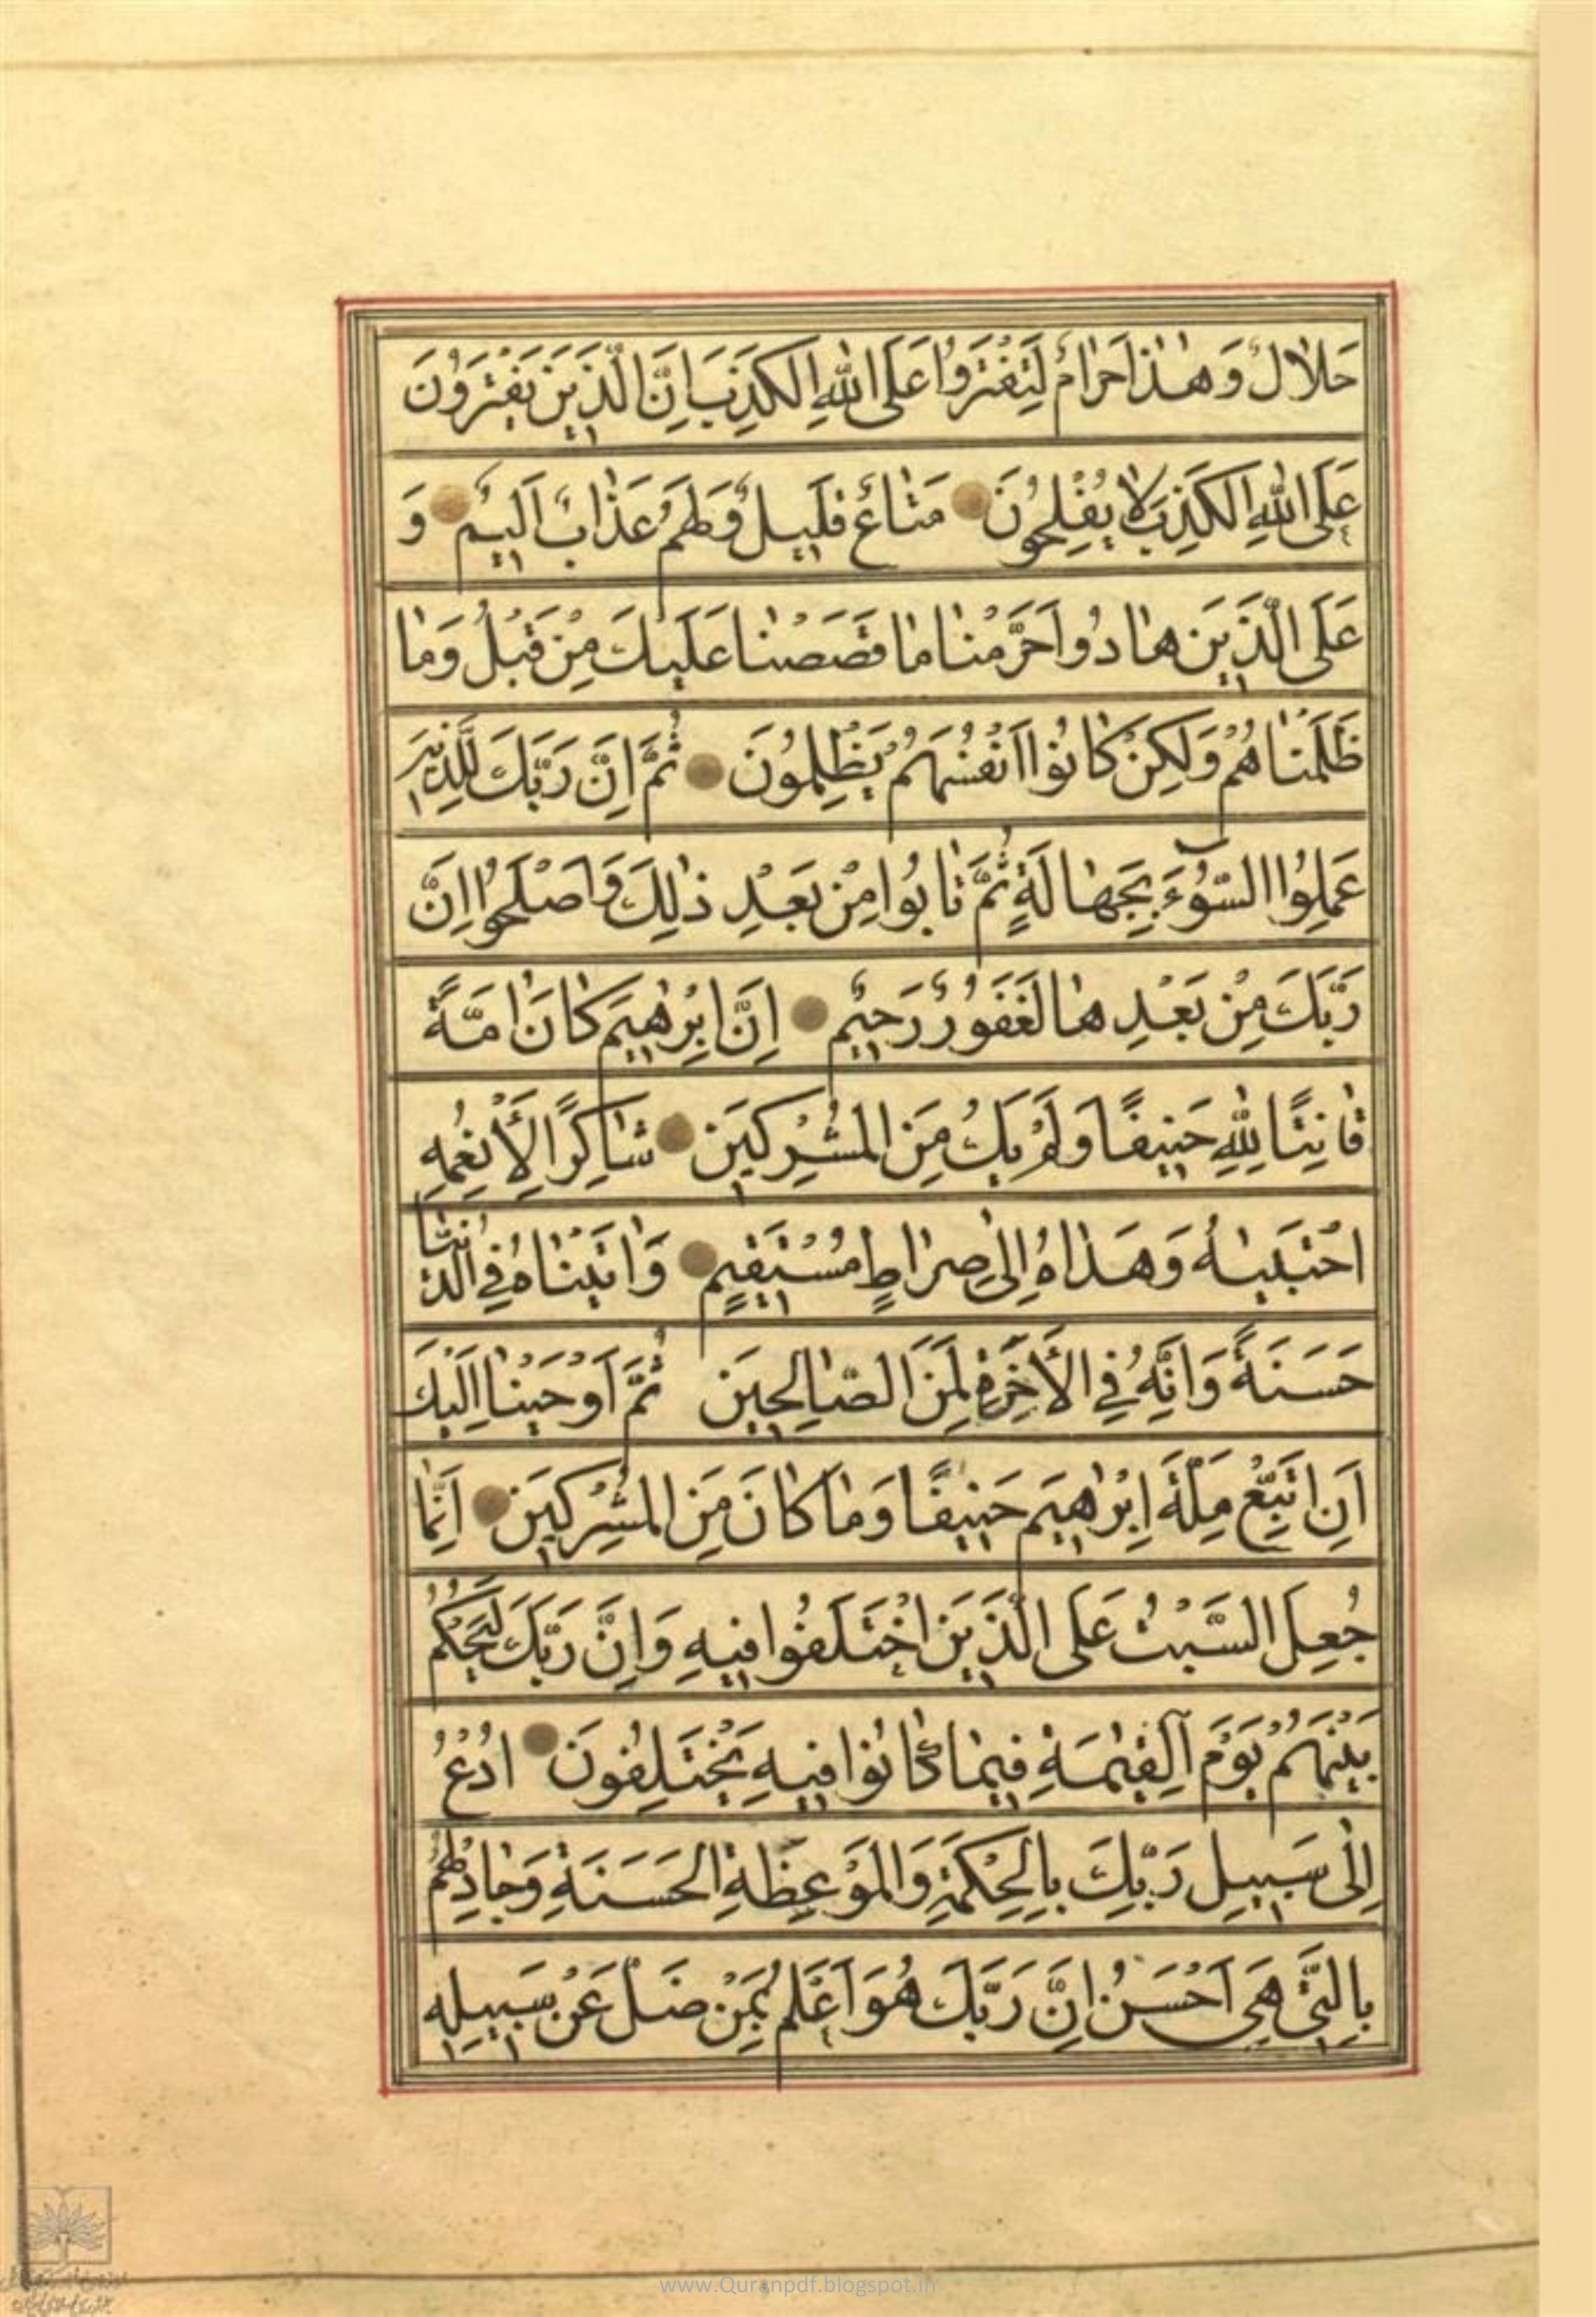 حَلالٌ وَهٰذا حَرامٌ لِتَفْتَرُوا عَلَى اللهِ الكَذِبَ اِنَّ الَّذِينَ يَفْتَرُونَ
عَلَى اللهِ الكَذِبَ لا يُفْلِحُونَ مَتاعٌ قَلِيلٌ وَلَهُمْ عَذابٌ اَلِيمٌ وَ
عَلَى الَّذِينَ هادُوا حَرَّمْنا ما قَصَصْنا عَلَيْكَ مِنْ قَبْلُ وَما
ظَلَمْناهُمْ وَلكِنْ كانُوا اَنْفُسَهُمْ يَظْلِمُونَ ثُمَّ اِنَّ رَبَّكَ لِلَّذِينَ
عَمِلُوا السُّوٓءَ بِجَهالَةٍ ثُمَّ تابُوا مِنْ بَعْدِ ذٰلِكَ وَاَصْلَحُوا اِنَّ
رَبَّكَ مِنْ بَعْدِها لَغَفُورٌ رَحِيمٌ اِنَّ اِبْرٰهِيمَ كانَ اُمَّةً
قانِتًا لِلّٰهِ حَنِيفًا وَلَمْ يَكُ مِنَ المُشْرِكِينَ شاكِرًا لِاَنْعُمِهِ
اجْتَبيٰهُ وَهَداهُ اِلىٰ صِراطٍ مُسْتَقِيمٍ وَاٰتَيْناهُ فِي الدُّنْيا
حَسَنَةً وَاِنَّهُ فِي الْاٰخِرَةِ لَمِنَ الصّالِحِينَ ثُمَّ اَوْحَيْنا اِلَيْكَ
اَنِ اتَّبِعْ مِلَّةَ اِبْرٰهِيمَ حَنِيفًا وَما كانَ مِنَ المُشْرِكِينَ اِنَّما
جُعِلَ السَّبْتُ عَلَى الَّذِينَ اخْتَلَفُوا فِيهِ وَاِنَّ رَبَّكَ لَيَحْكُمُ
بَيْنَهُمْ يَوْمَ القِيٰمَةِ فِيما كانُوا فِيهِ يَخْتَلِفُونَ ادْعُ
اِلىٰ سَبِيلِ رَبِّكَ بِالحِكْمَةِ وَالمَوْعِظَةِ الحَسَنَةِ وَجادِلْهُمْ
بِالَّتِي هِيَ اَحْسَنُ اِنَّ رَبَّكَ هُوَ اَعْلَمُ بِمَنْ ضَلَّ عَنْ سَبِيلِهِ
www.Quranpdf.blogspot.in